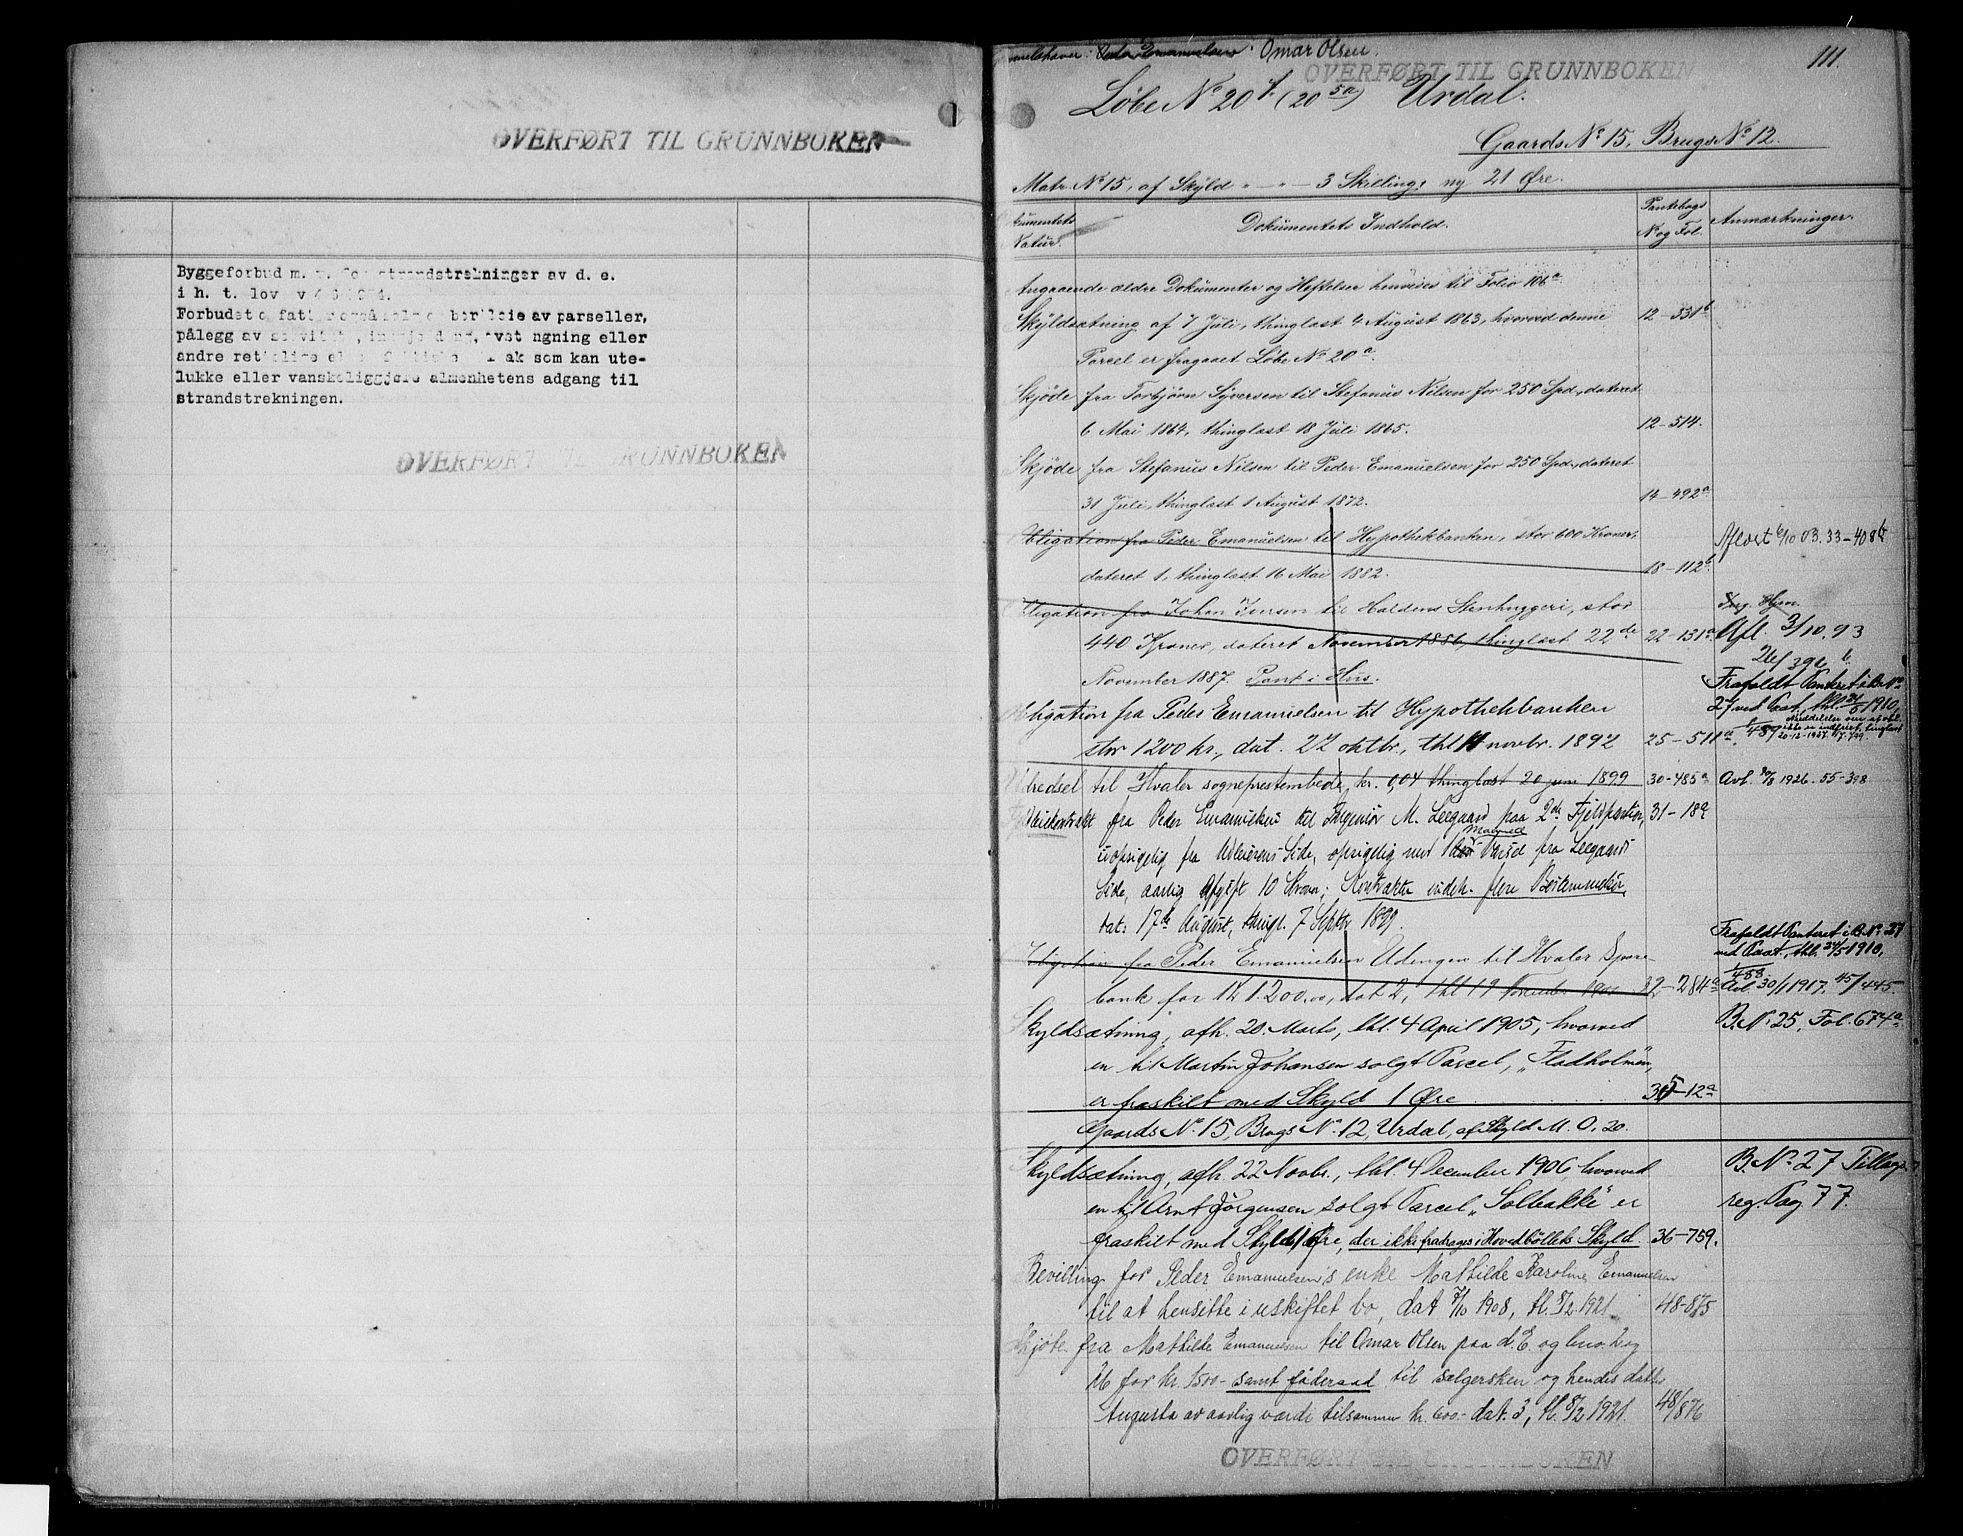 OVERFØRT TIL GRUNNBOKEN
Byggeforbud m. v. for strandstrekninger av d. e.
i h. t. lov
Forbudet av parseller,
pålegg av eller
andre som kan ute-
lukke eller vanskeliggjøre almenhetens adgang til
strandstrekningen.
OVERFØRT TIL GRUNNBOKEN
Peder Emanuelsen. Omar Olsen.
OVERFØRT TIL GRUNNBOKEN
111.
Løbe No 20 f. (20 5a) Urdal.
Gaards No 15, Brugs No 12.
Matr. No 15, af Skyld " — " — 3 Skilling, ny 21 Øre.
Dokumentets Natur.
Dokumentets Indhold.
Pantebogs No og Fol.
Anmærkninger.
Angaaende ældre Dokumenter og Heftelser henvises til Folio 106a
Skyldsætning af 7 Juli, thinglæst 4 August 1863, hvorved denne 12-331b
Parcel er fragaaet Løbe No 20a.
Skjøde fra Torbjørn Syversen til Stefanus Nilsen for 250 Spd., dateret
6 Mai 1864, thinglæst 18 Juli 1865. 12-514.
Skjøde fra Stefanus Nilsen til Peder Emanuelsen for 250 Spd., dateret
31 Juli, thinglæst 1 August 1872. 14-492a
Obligation fra Peder Emanuelsen til Hypothekbanken, stor 600 Kroner, Aflæst 6/10 03. 33-408b
dateret 1, thinglæst 16 Mai 1882. 18-112b.
Obligation fra Johan Iversen til Haldens Stenhuggeri, stor
440 Kroner, dateret November 1886, thinglæst 22de 22-131a Afl. 3/10. 93
November 1887. Pant i Hus.
Obligation fra Peder Emanuelsen til Hypothekbanken Frafaldt Panteret i B. No
27 ved Paat., thl. 24/5 1910,
stor 1200 kr., dat. 22 oktbr., thl 11 novbr. 1892 25-511a.
Utredsel til Hvaler sogneprestembede, kr. 0,04 thinglæst 20 juni 1899 30-485a Avl. 1926. 55-398
Leiekontrakt fra Peder Emanuelsen til Ingeniør M. Leegaard paa 2de Fjeldpartier, 31-189
uopsigelig fra Udleierens Side, opsigelig med Maaneds Varsel fra Leegaards
Side, aarlig Afgift 10 Kroner; Kontrakten indeh. flere Bestemmelser,
dat. 17de August, thingl. 7 Septbr 1899.
Frafaldt Panteret i B. No. 27
ved Paat., thl. 24/5 1910,
Obligation fra Peder Emanuelsen Udengen til Hvaler Spare-
bank for kr 1200,00, dat 2, thl 19 November 32-284a Avl. 30/1 1917. 45/445.
Skyldsætning, afh. 20. Marts, thl. 4 April 1905, hvorved B. No. 25, Fol. 674a.
en til Martin Johansen solgt Parcel, „Fladholmen",
er fraskilt med Skyld 1 Øre 35-12a
Gaards No. 15, Brugs No. 12, Urdal, af Skyld M. 0,20.
Skyldsætning, afh. 22 Novbr., thl. 4 December 1906, hvorved B. No. 27 Tillægs-
en til Arnt Jørgensen solgt Parcel „Solbakke" er reg. Pag 77.
fraskilt med Skyld 1 Øre, der ikke fradrages i Hovedbøllets Skyld. 36-759.
Bevilling for Peder Emanuelsen's enke Mathilde Karoline Emanuelsen
til at hensitte i uskiftet bo, dat 7/10 1908, tl. 8/2 1921 48-875
Skjøte fra Mathilde Emanuelsen til Omar Olsen paa d. E. og bno.
16 for kr. 1500- samt føderaad til sælgersken og hendes datter
Augusta av aarlig værdi tilsammen kr. 600.- dat. 3, tl. 8/2 1921. 48/876
OVERFØRT TIL GRUNNBOKEN